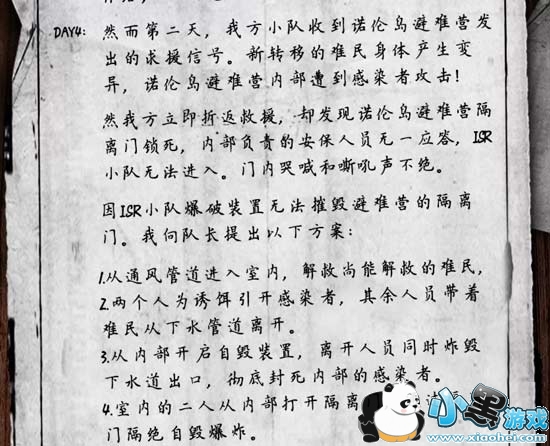 DAY4: 然而第二天，我方小队收到诺伦岛避难营发
出的求援信号。新转移的难民身体产生变
异，诺伦岛避难营内部遭到感染者攻击！
然我方立即折返救援，却发现诺伦岛避难营隔
离门锁死，内部负责的安保人员无一应答，ISR
小队无法进入。门内哭喊和嘶吼声不绝。
因ISR小队爆破装置无法摧毁避难营的隔离
门。我向队长提出以下方案：
1.从通风管道进入室内，解救尚能解救的难民，
2.两个人为诱饵引开感染者，其余人员带着
难民从下水管道离开。
3.从内部开启自毁装置，离开人员同时炸毁
下水道出口，彻底封死内部的感染者。
4.室内的二人从内部打开隔离
门隔绝自毁爆炸。
小黑游戏
www.xiaohei.com